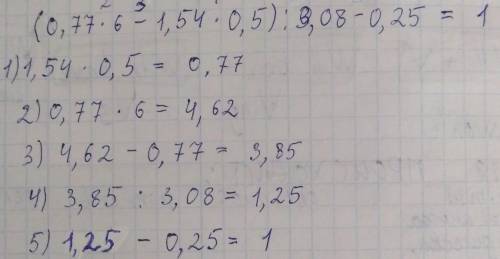 (0,77 · 6 - 1,54 · 0,5) : 3,08 - 0,25 = 1
1) 1,54 · 0,5 = 0,77
2) 0,77 · 6 = 4,62
3) 4,62 - 0,77 = 3,85
4) 3,85 : 3,08 = 1,25
5) 1,25 - 0,25 = 1